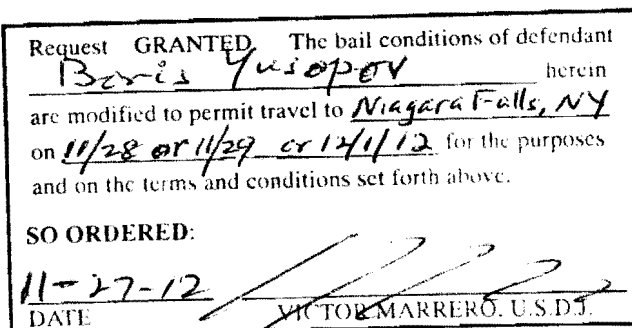 Request GRANTED. The bail conditions of defendant
Boris Yusopov herein
are modified to permit travel to Niagara Falls, NY
on 11/28 or 11/29 or 12/1/12 for the purposes
and on the terms and conditions set forth above.
SO ORDERED:
11-27-12
DATE VICTOR MARRERO, U.S.D.J.